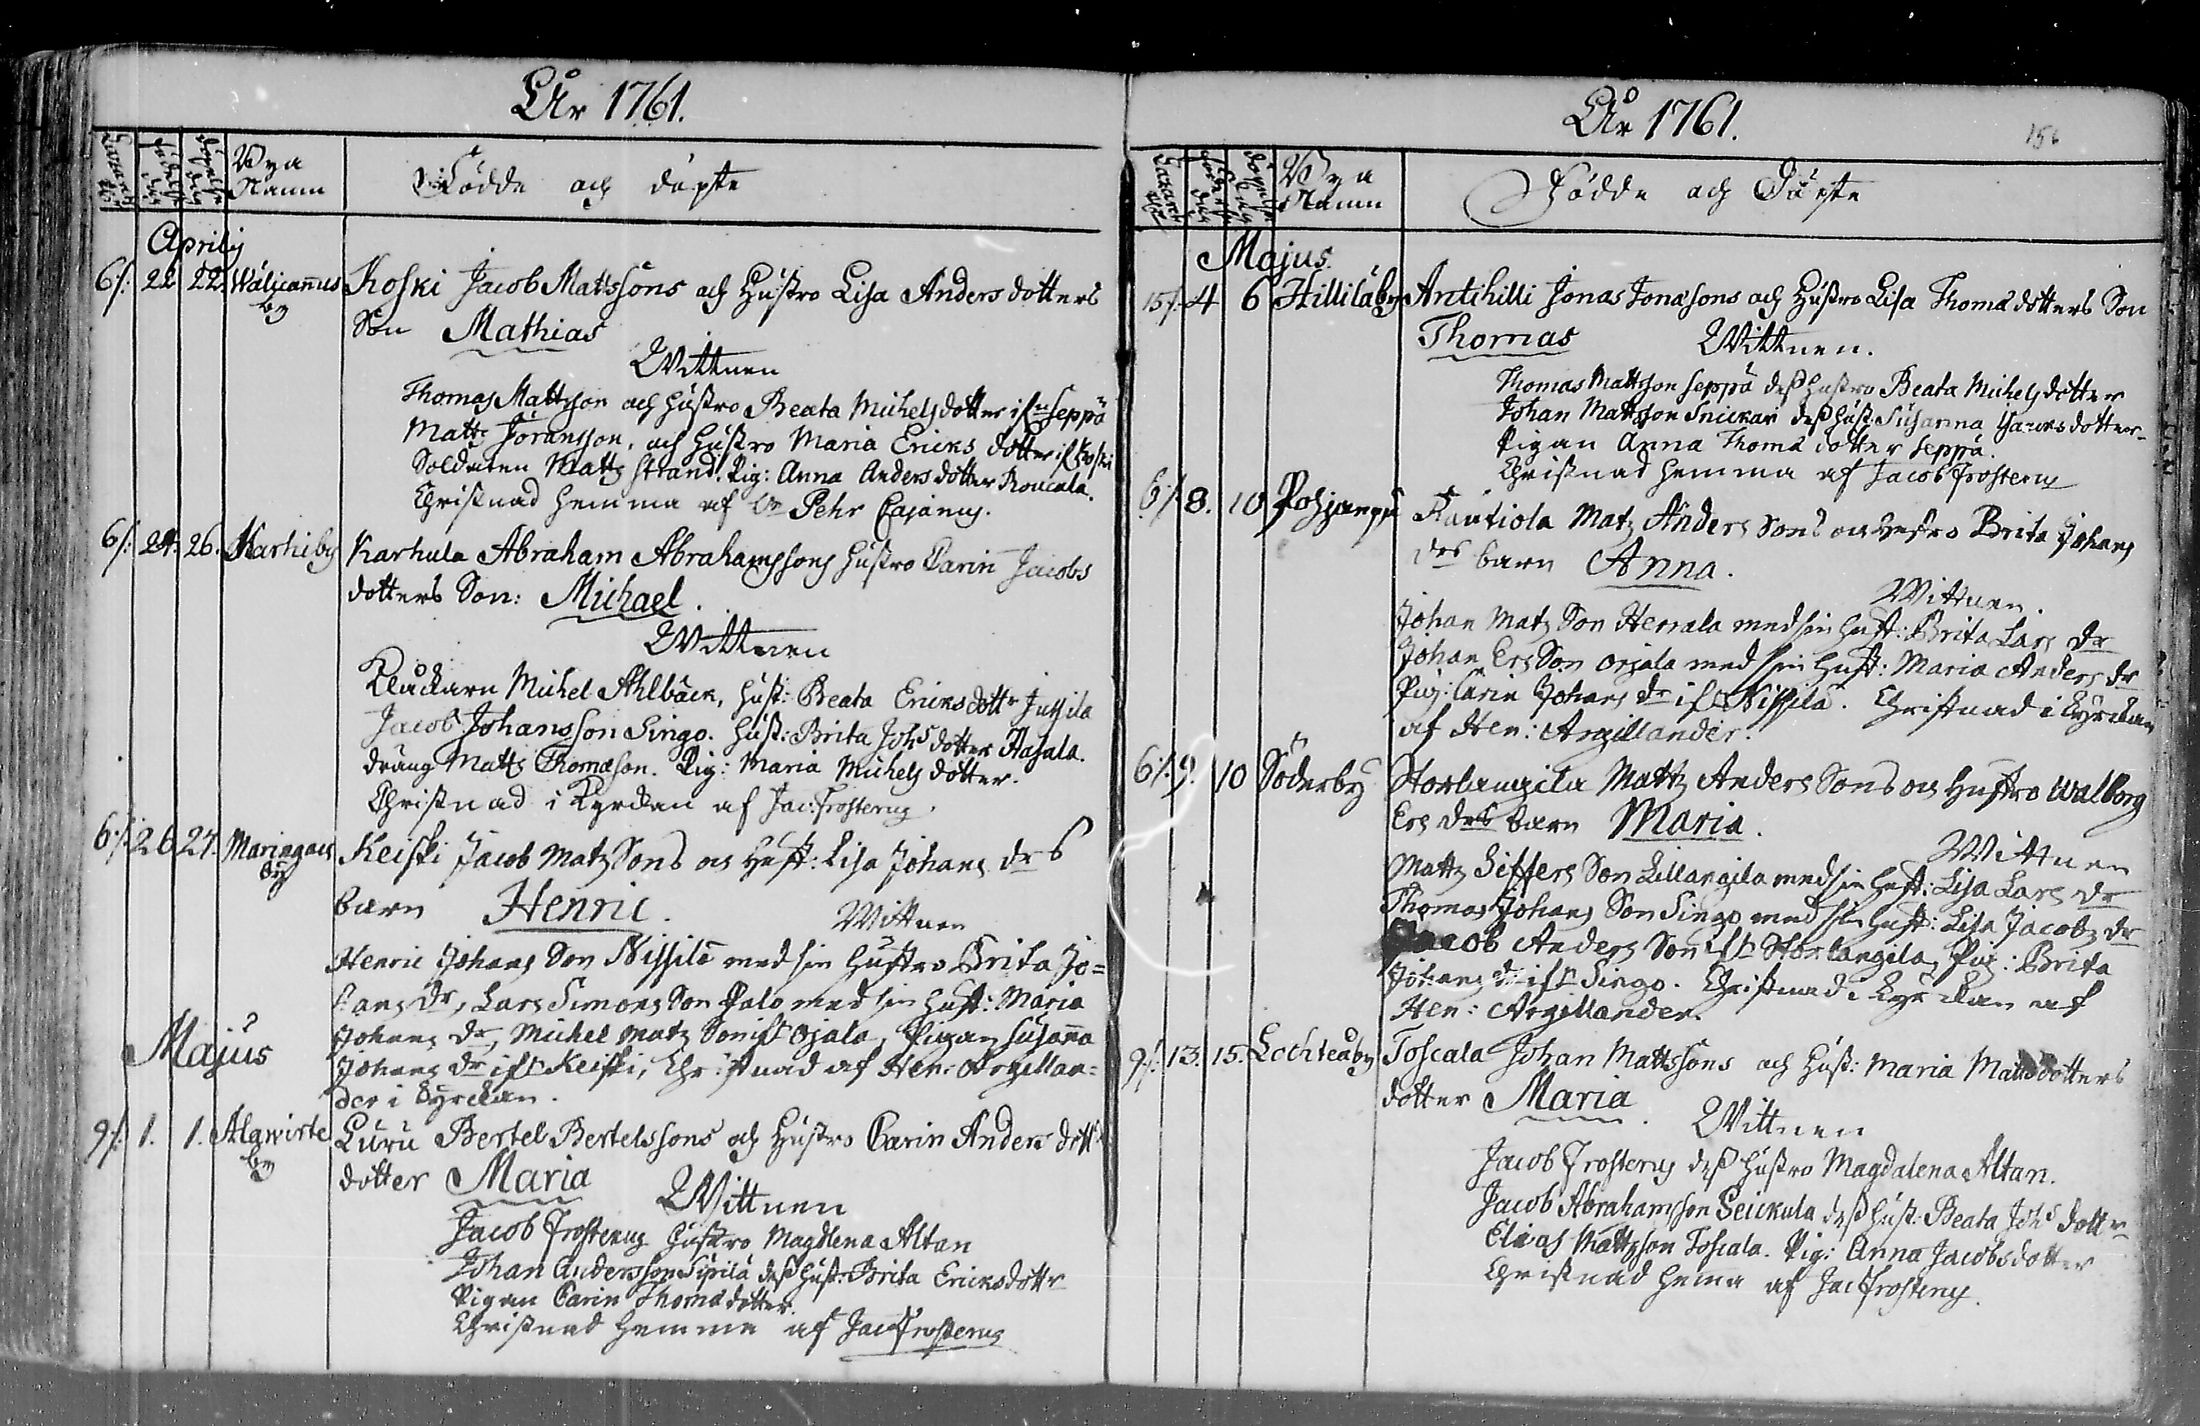 År 1761.
Bya Namn
Födde och döpte
Aprilis
6/: 22 22 Wälicannus by Koski Jacob Matssons och Hustro Lisa Anders dotters
Son Mathias
Wittnen
Thomas Mattsson och Hustro Beata Michelsdotter ifrn Seppä
Matts Jöransson, och Hustro Maria Ericks dotter if: Koski
Soldaten Matts Strand. Pig: Anna Anders dotter Roucala.
Christnad hemma af Pehr Cajanus.
6/: 24. 26. Karhiby Karhula Abraham Abrahamssons Hustro Carin Jacobs
dotters Son: Michael.
Wittnen
Klåckarn Michel Ahlbäck, Hust: Beata Ericksdottr Jussila
Jacob Johansson Singo. Hust: Brita Johs dotter Hasala.
dräng Matts Thomæson. Pig: Maria Michels dotter.
Christnad i Kyrckan af Jac: Frosterus.
6/: 26 27. Maringais by Keiski Jacob Matz Sons och Hust: Lisa Johans drs
barn Henric.
Wittnen
Henric Johans Son Nissilä med sin Hustro Brita Jo=
hans Dr, Lars Simons Son Palo med sin Hust: Maria
Johans Dr, Michel Matz Son if: Ojala, Pigan Susanna
Johans Dr ifr Keiski, Christnad af Hen: Argillan=
der i Kyrckan.
Majus
9/: 1. 1. Alawirte by Luru Bertel Bertelssons och Hustro Carin Anders dottr
dotter Maria
Wittnen
Jacob Frosterus Hustro Magdlena Altan
Johan Andersson Sipilä dess Hust: Brita Ericksdottr
Pigan Carin Thomædotter.
Christnad hemma af Jac Frosterus
År 1761.
156
Bya Namn
Födde och Döpte
Majus.
15/: 4 6 Hilliläby Antihilli Jonas Jonæsons och Hustro Lisa Thomæ dotters Son
Thomas
Wittnen.
Thomas Mattsson Seppä dess Hustro Beata Michelsdotter
Johan Mattsson Snickar dess Hust: Susanna Isacksdotter
Pigan Anna Thomæ dotter Seppä.
Christnad hemma af Jacob Frosterus
6/: 8. 10 Pohjanpä Rautiola Matz Anders Sons och Hustro Brita Johans
drs barn Anna.
Wittnen.
Johan Matz Son Herrala med sin Hust: Brita Lars Dr
Johan Ers Son Orjala med sin Hust: Maria Anders Dr
Pig: Carin Johans Dr if: Nissilä. Christnad i Kyrckan
af Hen: Argillander.
6/: 9. 10 Söderby Storlangila Mattz Anders Sons och Hustro Walborg
Ers Drs barn Maria.
Wittnen
Matts Siffers Son Lillangila med sin Hust: Lisa Lars Dr
Thomas Johans Son Singo med sin Hust: Lisa Jacobs Dr
Jacob Anders Son ifr Storlangila, Pig: Brita
Johans dr ifr Singo. Christnad i Kyrckan af
Hen: Argillander.
9/: 13. 15. Lochteåby Toscala Johan Mattssons och Hust: Maria Mattsdotters
dotter Maria.
Wittnen
Jacob Frosterus dess Hustro Magdalena Altan.
Jacob Abrahamsson Seickula dess Hust: Beata Johs dottr
Elias Mattsson Toscala. Pig: Anna Jacobsdotter
Christnad hemma af Jac Frosterus.